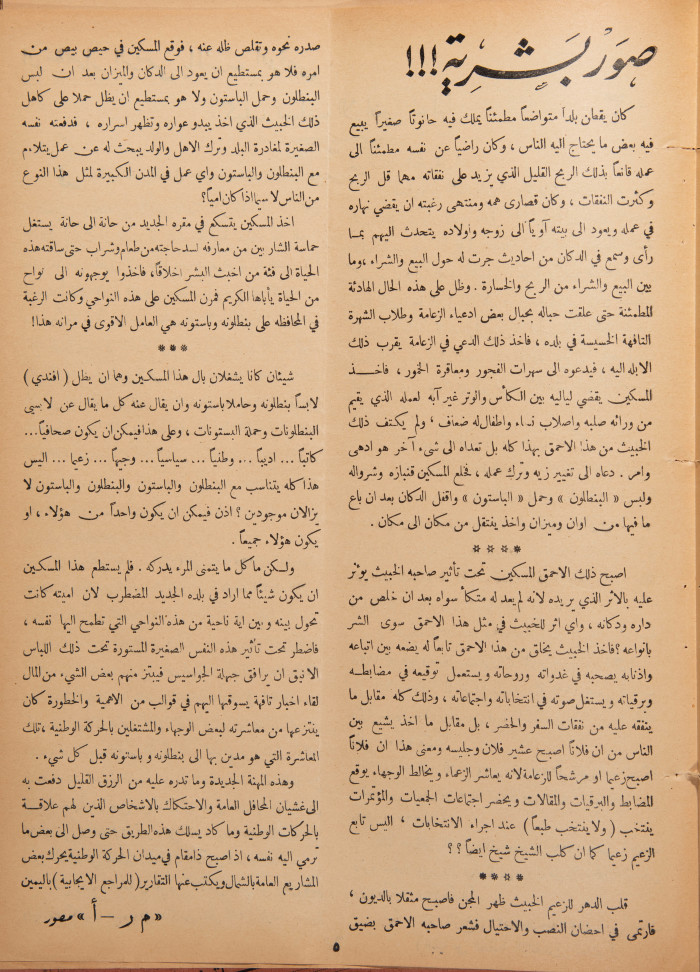 صوَر بَشرية !!!
كان يقطن بلداً متواضعاً مطمئناً يملك فيه حانوتاً صغيراً يبيع
فيه بعض ما يحتاج اليه الناس ، وكان راضياً عن نفسه مطمئناً الى
عمله قانعاً بذلك الربح القليل الذي يزيد على نفقاته مهما قل الربح
وكثرت النفقات ، وكان قصارى همه ومنتهى رغبته ان يقضي نهاره
في عمله ويعود الى بيته آوياً الى زوجه واولاده يتحدث اليهم بمـا
رأى وسمع في الدكان من احاديث جرت له حول البيع والشراء ،وما
بين البيع والشراء من الربح والخسارة . وظل على هذه الحال الهادئة
المطمئنة حتى علقت حباله بحبال بعض ادعياء الزعامة وطلاب الشهرة
التافهة الخسيسة في بلده ، فاخذ ذلك الدعي في الزعامة يقرب ذلك
الابله اليه ، فيدعوه الى سهرات الفجور ومعاقرة الخمور ، فاخـــذ
المسكين يقضي لياليه بين الكأس والوتر غير آبه لعمله الذي يقيم
من ورائه صلبه واصلاب نساء واطفال له ضعاف ، ولم يكتف ذلك
الخبيث من هذا الاحمق بهذا كله بل تعداه الى شيء آخر هو ادهى
وامر . دعاه الى تغيير زيه وترك عمله ، فخلع المسكين قنبازه وشرواله
ولبس « البنطلون » وحمل « الباستون » واقفل الدكان بعد ان باع
ما فيها من اوان وميزان واخذ ينتقل من مكان الى مكان .
* * * *
اصبح ذلك الاحمق المسكين تحت تأثير صاحبه الخبيث يؤثر
عليه بالاثر الذي يريده لانه لم يعد له متكأ سواه بعد ان خلص من
داره ودكانه ، واي اثر للخبيث في مثل هذا الاحمق سوى الشر
بانواعه ؟ فاخذ الخبيث يخلق من هذا الاحمق تابعاً له يضعه بين اتباعه
واذنابه يصحبه في غدواته وروحاته ويستعمل توقيعه في مضابطـه
وبرقياته ويستغل صوته في انتخاباته واجتماعاته ، وذلك كله مقابل ما
ينفقه عليه من نفقات السفر والحضر ، بل مقابل ما اخذ يشيع بين
الناس من ان فلاناً اصبح عشير فلان وجليسه ومعنى هذا ان فلاناً
اصبح زعيما او مرشحاً للزعامة لانه يعاشر الزعماء ويخالط الوجهاء يوقع
المضابط والبرقيات والمقالات ويحضر اجتماعات الجمعيات والمؤتمرات
ينتخب ( ولا يُنتخب طبعاً ) عند اجراء الانتخابات ، اليس تابع
الزعيم زعيما كما ان كلب الشيخ شيخ ايضاً ؟ ؟
* * * *
قلب الدهر للزعيم الخبيث ظهر المجن فاصبح مثقلا بالديون ،
فارتمى في احضان النصب والاحتيال فشعر صاحبه الاحمق بضيق
صدره نحوه وتقلص ظله عنه ، فوقع المسكين في حيص بيص من
امره فلا هو بمستطيع ان يعود الى الدكان والميزان بعد ان لبس
البنطلون وحمل الباستون ولا هو بمستطيع ان يظل حملا على كاهل
ذلك الخبيث الذي اخذ يبدو عواره وتظهر اسراره ، فدفعته نفسه
الصغيرة لمغادرة البلد وترك الاهل والولد يبحث له عن عمل يتلاءم
مع البنطلون والباستون واي عمل في المدن الكبيرة لمثل هذا النوع
من الناس لاسيما اذا كان امياً؟
اخذ المسكين يتسكع في مقره الجديد من حانة الى حانة يستغل
حماسة الشاربين من معارفه لسد حاجته من طعام وشراب حتى ساقته هذه
الحياة الى فئة من اخبث البشر اخلاقاً، فاخذوا يوجهونه الى نواح
من الحياة يأباها الكريم فمرن المسكين على هذه النواحي وكانت الرغبة
في المحافظه على بنطلونه وباستونه هي العامل الاقوى في مرانه هذا!
* * *
شيئان كانا يشغلان بال هذا المسكين وهما ان يظل ( افندي )
لابساً بنطلونه وحاملا باستونه وان يقال عنه كل ما يقال عن لابسي
البنطلونات وحملة البستونات ، وعلى هذا فيمكن ان يكون صحافياً...
كاتباً ... اديباً ... وطنياً ... سياسياً ... وجيهاً ... زعيما ... اليس
هذا كله يتناسب مع البنطلون والباستون والبنطلون والباستون لا
يزالان موجودين ؟ اذن فيمكن ان يكون واحداً من هؤلاء ، او
يكون هؤلاء جميعاً .
ولـكن ما كل ما يتمنى المرء يدركه . فلم يستطع هذا المسكـين
ان يكون شيئاً مما اراد في بلده الجديد المضطرب لان اميته كانت
تحول بينه وبين اية ناحية من هذه النواحي التي تطمح اليها نفسه ،
فاضطر تحت تأثير هذه النفس الصغيرة المستورة تحت ذلك اللباس
الانيق ان يرافق جهلة الجواسيس فيبتز منهم بعض الشيء من المال
لقاء اخبار تافهة يسوقها اليهم في قوالب من الاهمية والخطورة كان
ينتزعها من معاشرته لبعض الوجهاء والمشتغلين بالحركة الوطنية ،تلك
المعاشرة التي هو مدين بها الى بنطلونه و باستونه قبل كل شيء .
وهذه المهنة الجديدة وما تدره عليه من الرزق القليل دفعت به
الى غشيان المحافل العامة والاحتكاك بالاشخاص الذين لهم علاقـة
بالحركات الوطنية وما كاد يسلك هذه الطريق حتى وصل الى بعض ما
ترمي اليه نفسه ، اذ اصبح ذا مقام في ميدان الحركة الوطنية يحرك بعض
المشاريع العامة بالشمال ويكتب عنها التقارير ( للمراجع الايجابية ) باليمين
« م ر – أ » مصور
٥